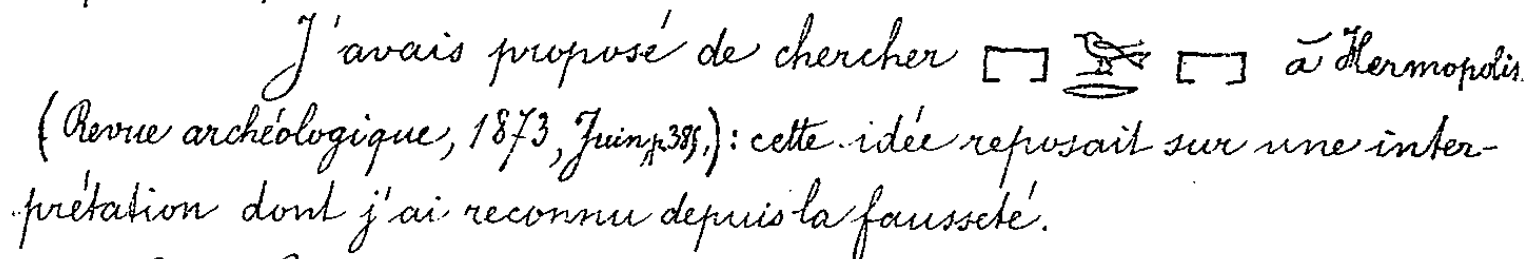 J'avais proposé de chercher 𓉐 𓅨𓂋 𓉐 à Hermopolis
(Revue archéologique, 1873, Juin, p. 385.): cette idée reposait sur une inter-
prétation dont j'ai reconnu depuis la fausseté.